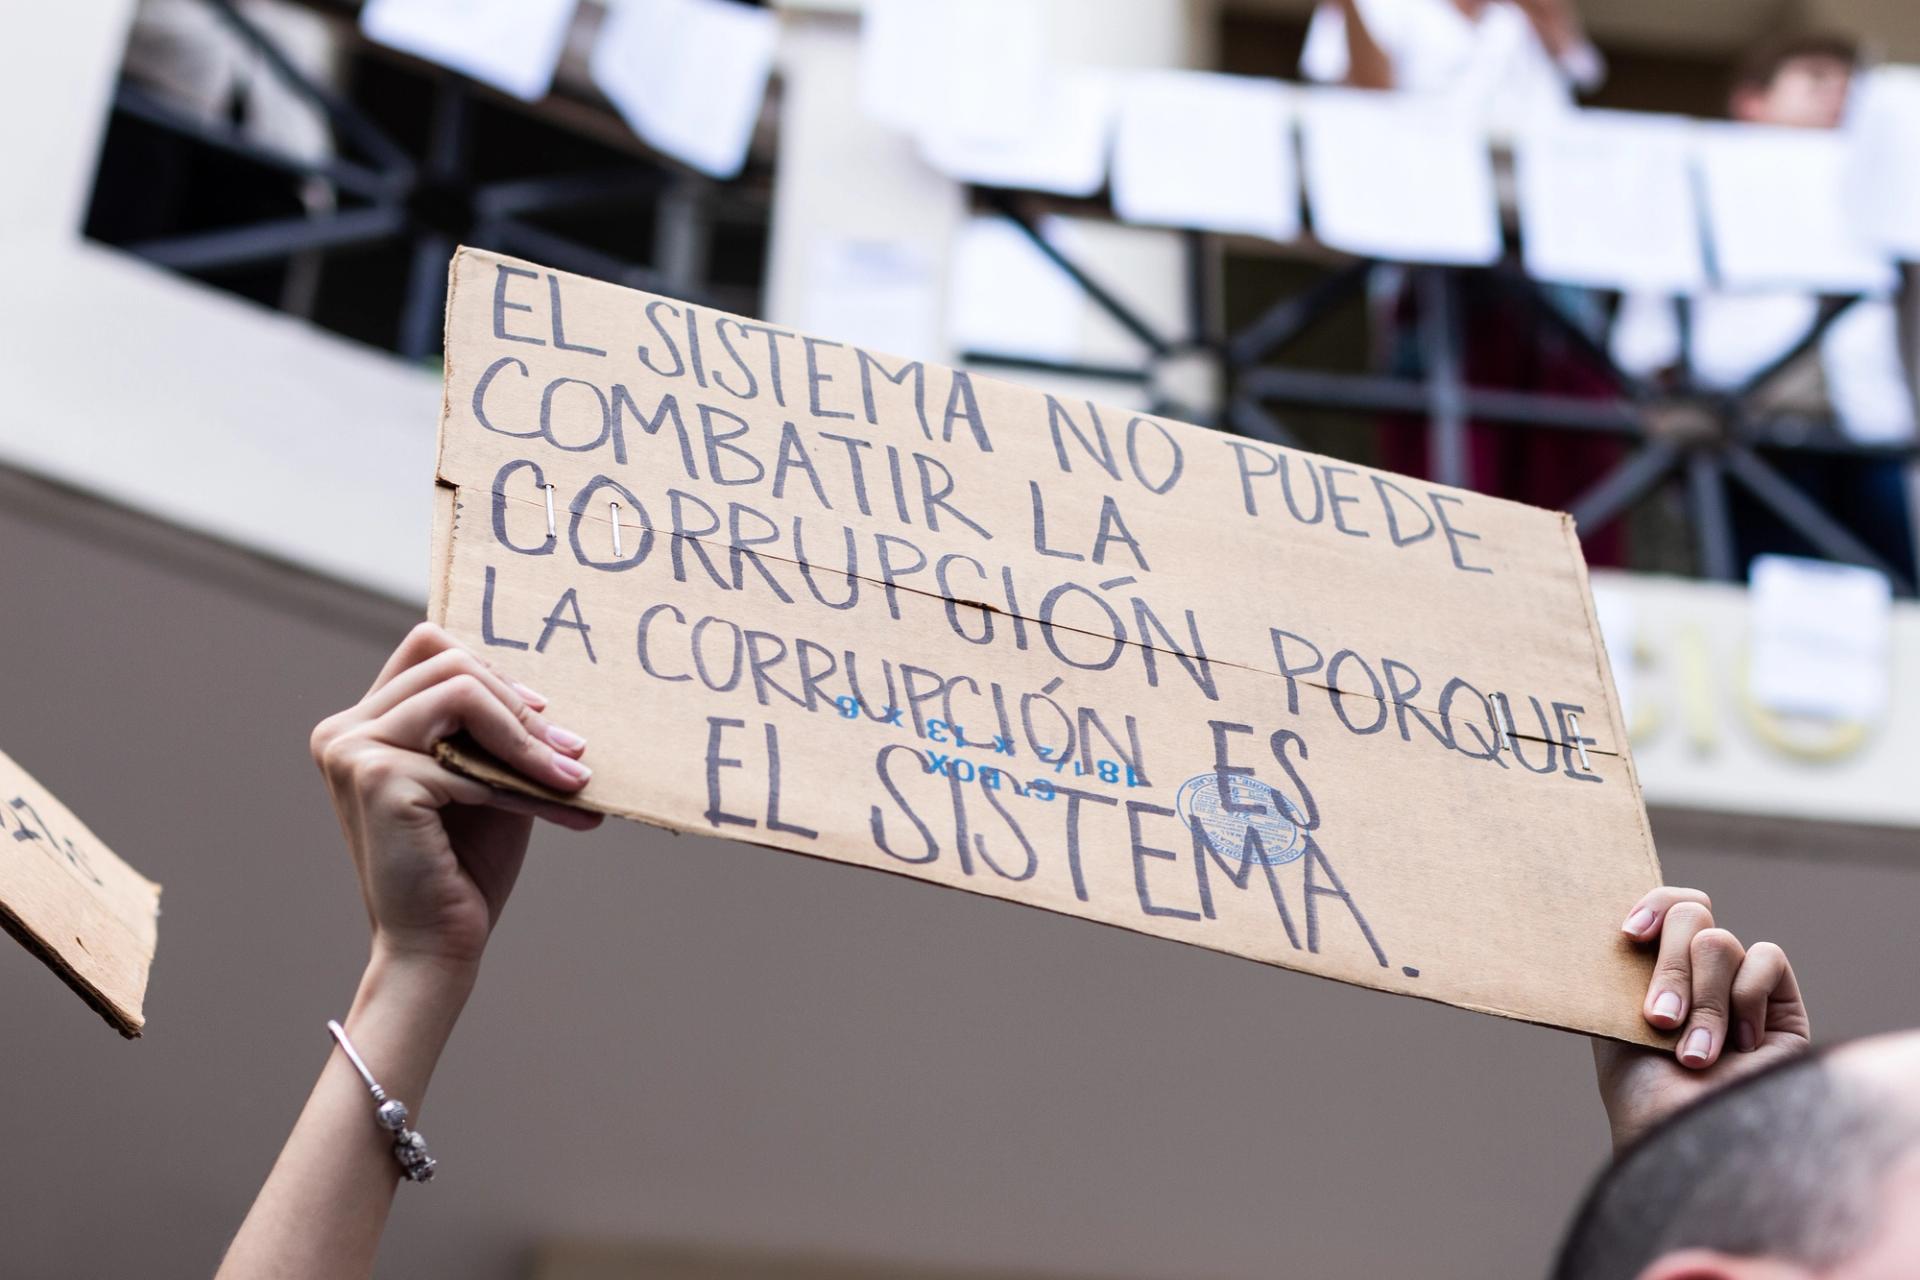 EL SISTEMA NO PUEDE
COMBATIR LA
CORRUPCIÓN PORQUE
LA CORRUPCIÓN ES
EL SISTEMA.
67 BOX
18 1/2 x 13 x 6